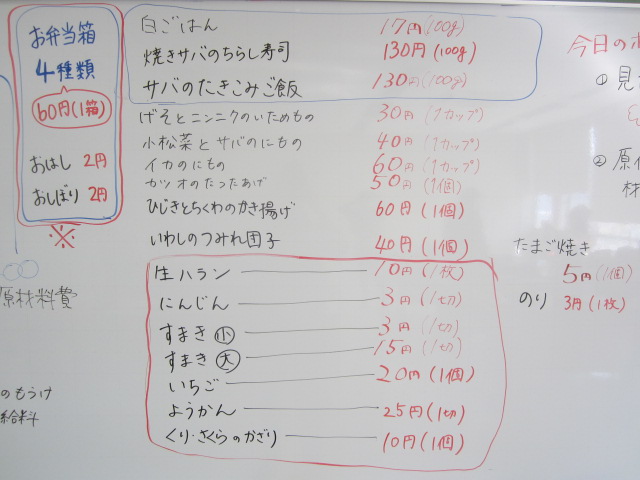 お弁当箱
4種類
60円(1箱)
おはし 2円
おしぼり 2円
※
原材料費
のもうけ
給料
白ごはん 17円(100g)
焼きサバのちらし寿司 130円(100g)
サバのたきこみご飯 130円(100g)
げそとニンニクのいためもの 30円(1カップ)
小松菜とサバのにもの 40円(1カップ)
イカのにもの 60円(1カップ)
カツオのたつたあげ 50円(1個)
ひじきとちくわのかき揚げ 60円(1個)
いわしのつみれ団子 40円(1個)
生ハラン 10円(1枚)
にんじん 3円(1切)
すまき小 3円(1切)
すまき大 15円(1切)
いちご 20円(1個)
ようかん 25円(1切)
くり・さくらのかざり 10円(1個)
今日のポ
① 見
② 原価
材
たまご焼き
5円(1個)
のり 3円(1枚)